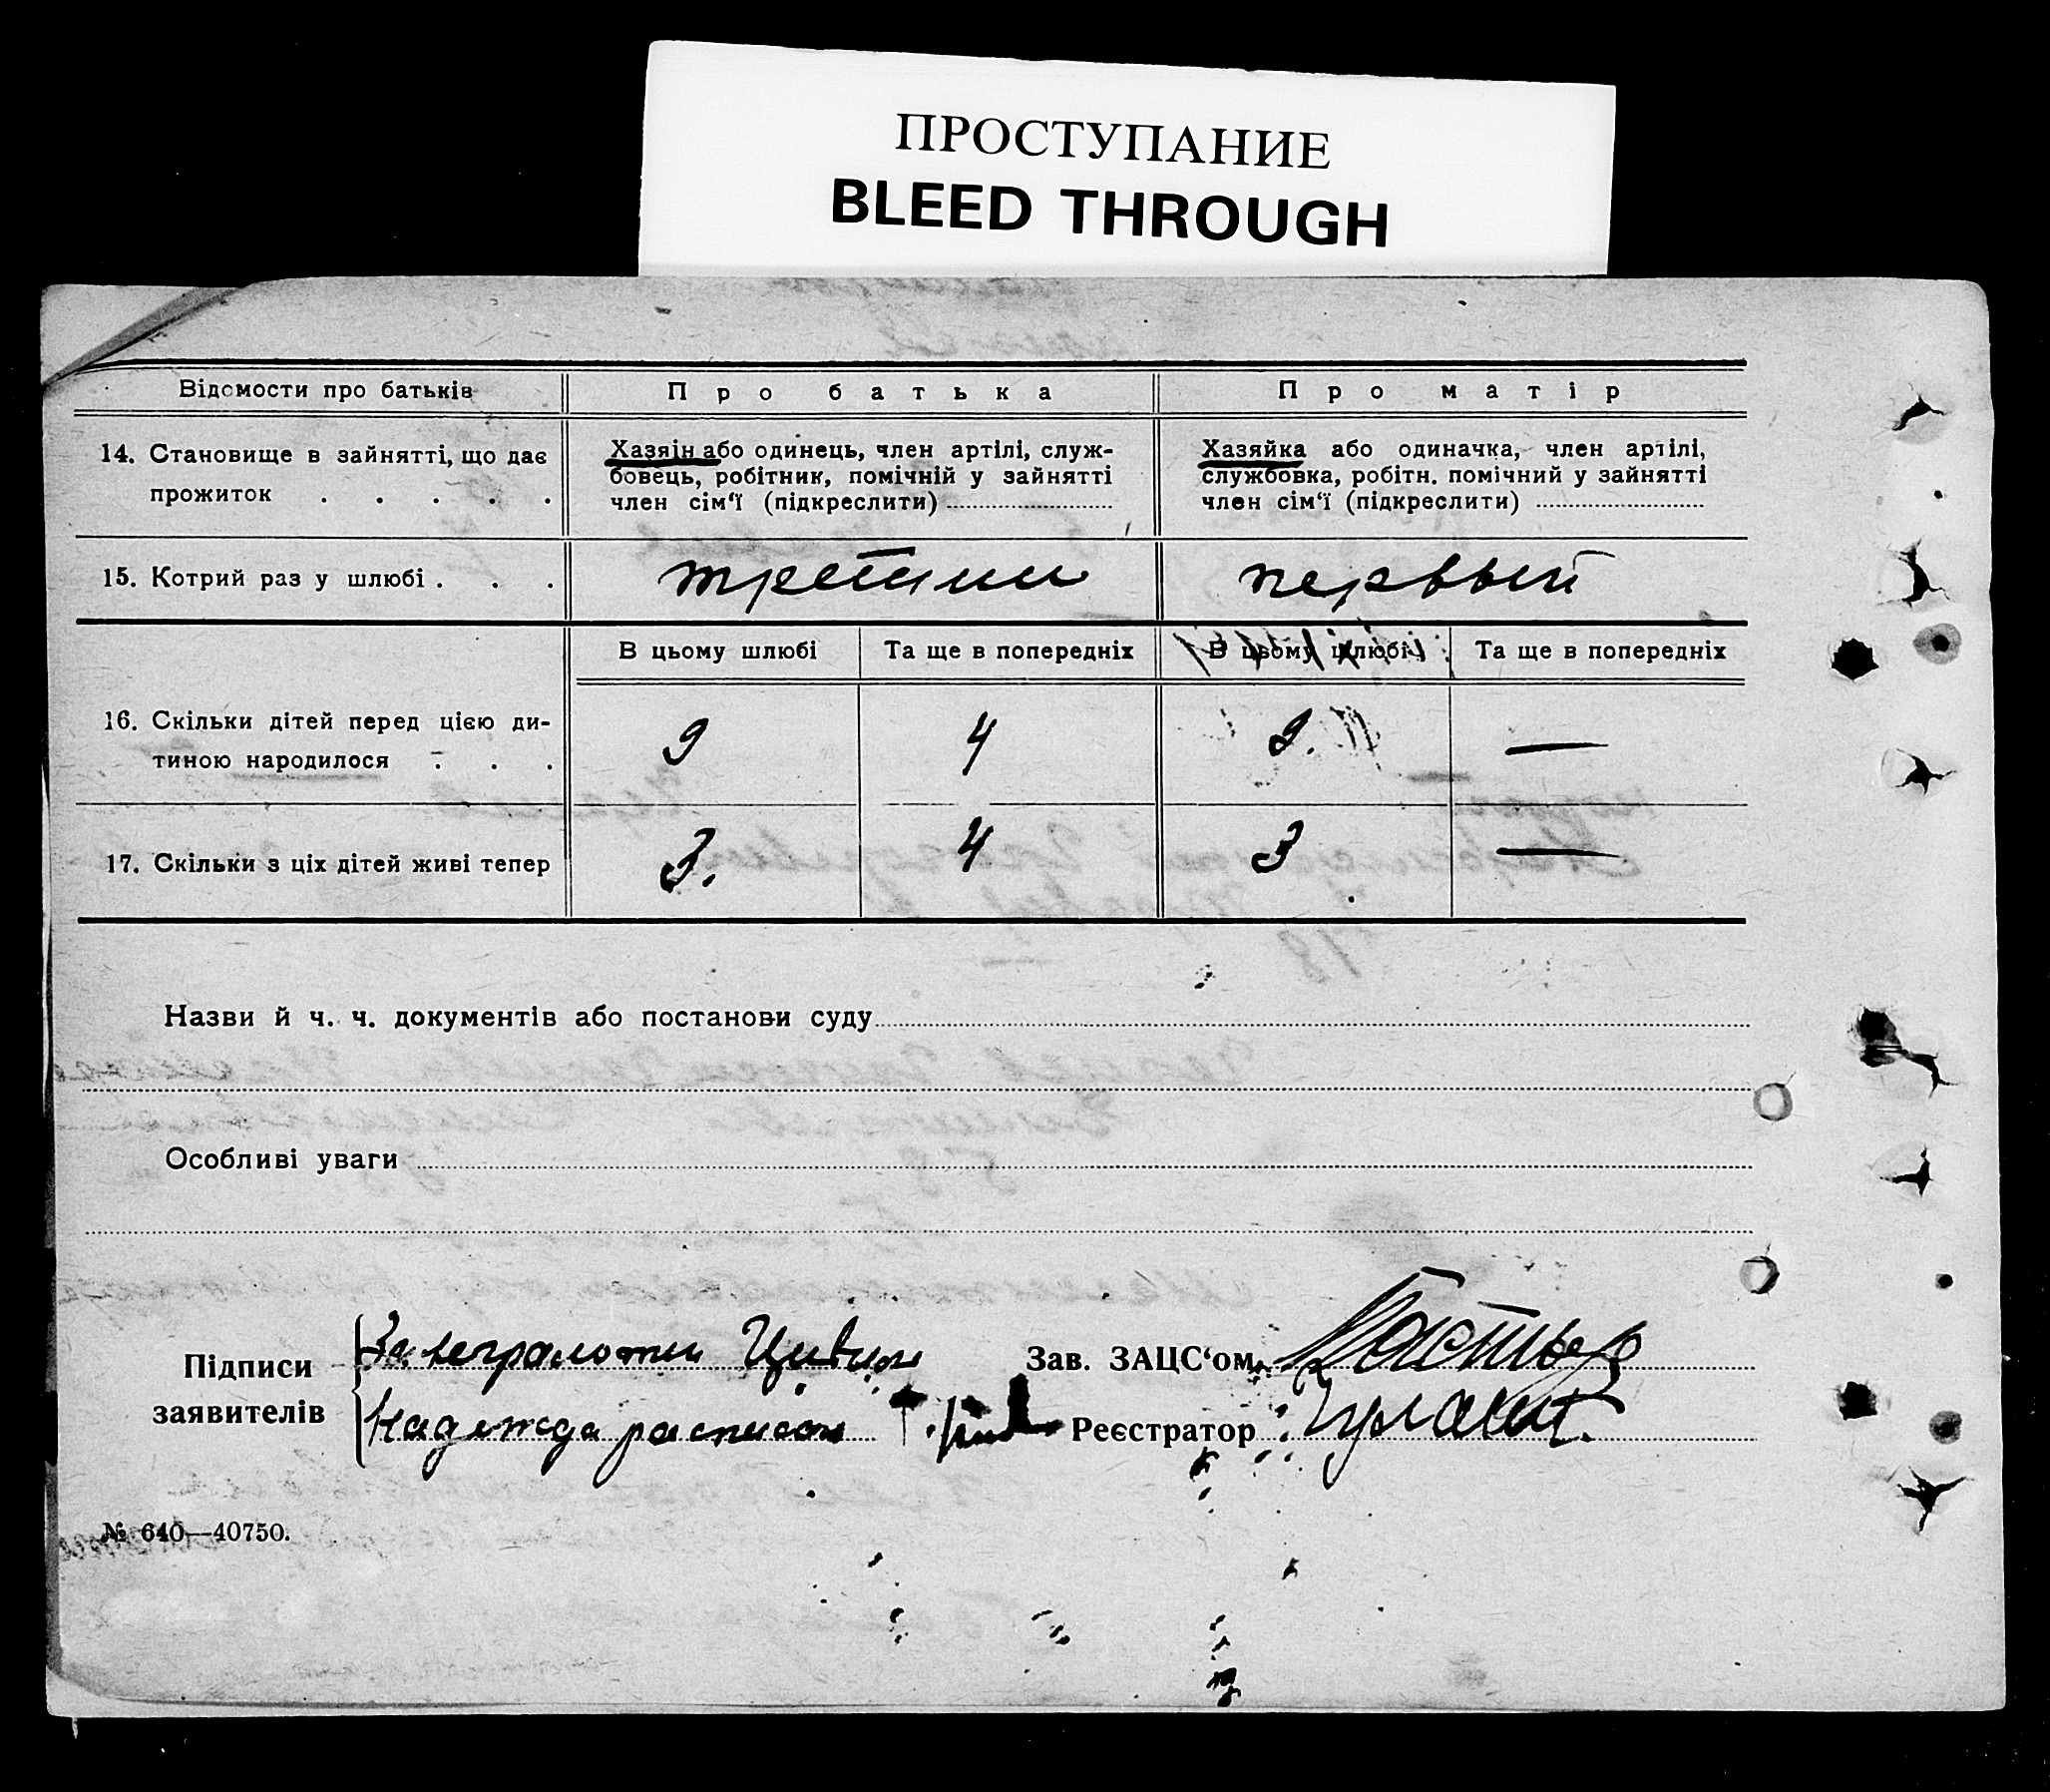 ПРОСТУПАНИЕ
BLEED THROUGH
Відомости про батьків
Про батька
Про матір
14. Становище в зайнятті, що дає
прожиток . . . . .
Хазяін або одинець, член артілі, служ-
бовець, робітник, помічній у зайнятті
член сім‘ї (підкреслити)
Хазяйка або одиначка, член артілі,
службовка, робітн. помічний у зайнятті
член сім‘ї (підкреслити)
15. Котрий раз у шлюбі . . .
третий
первый
В цьому шлюбі
Та ще в попередніх
В цьому шлюбі
Та ще в попередніх
16. Скільки дітей перед цією ди-
тиною народилося . . .
9
4
9.
—
17. Скільки з ціх дітей живі тепер
3.
4
3
—
Назви й ч. ч. документів або постанови суду
Особливі уваги
Підписи
заявителів
За неграмотн
Надежда расписал
Зав. ЗАЦС‘ом
Реєстратор
№ 640—40750.